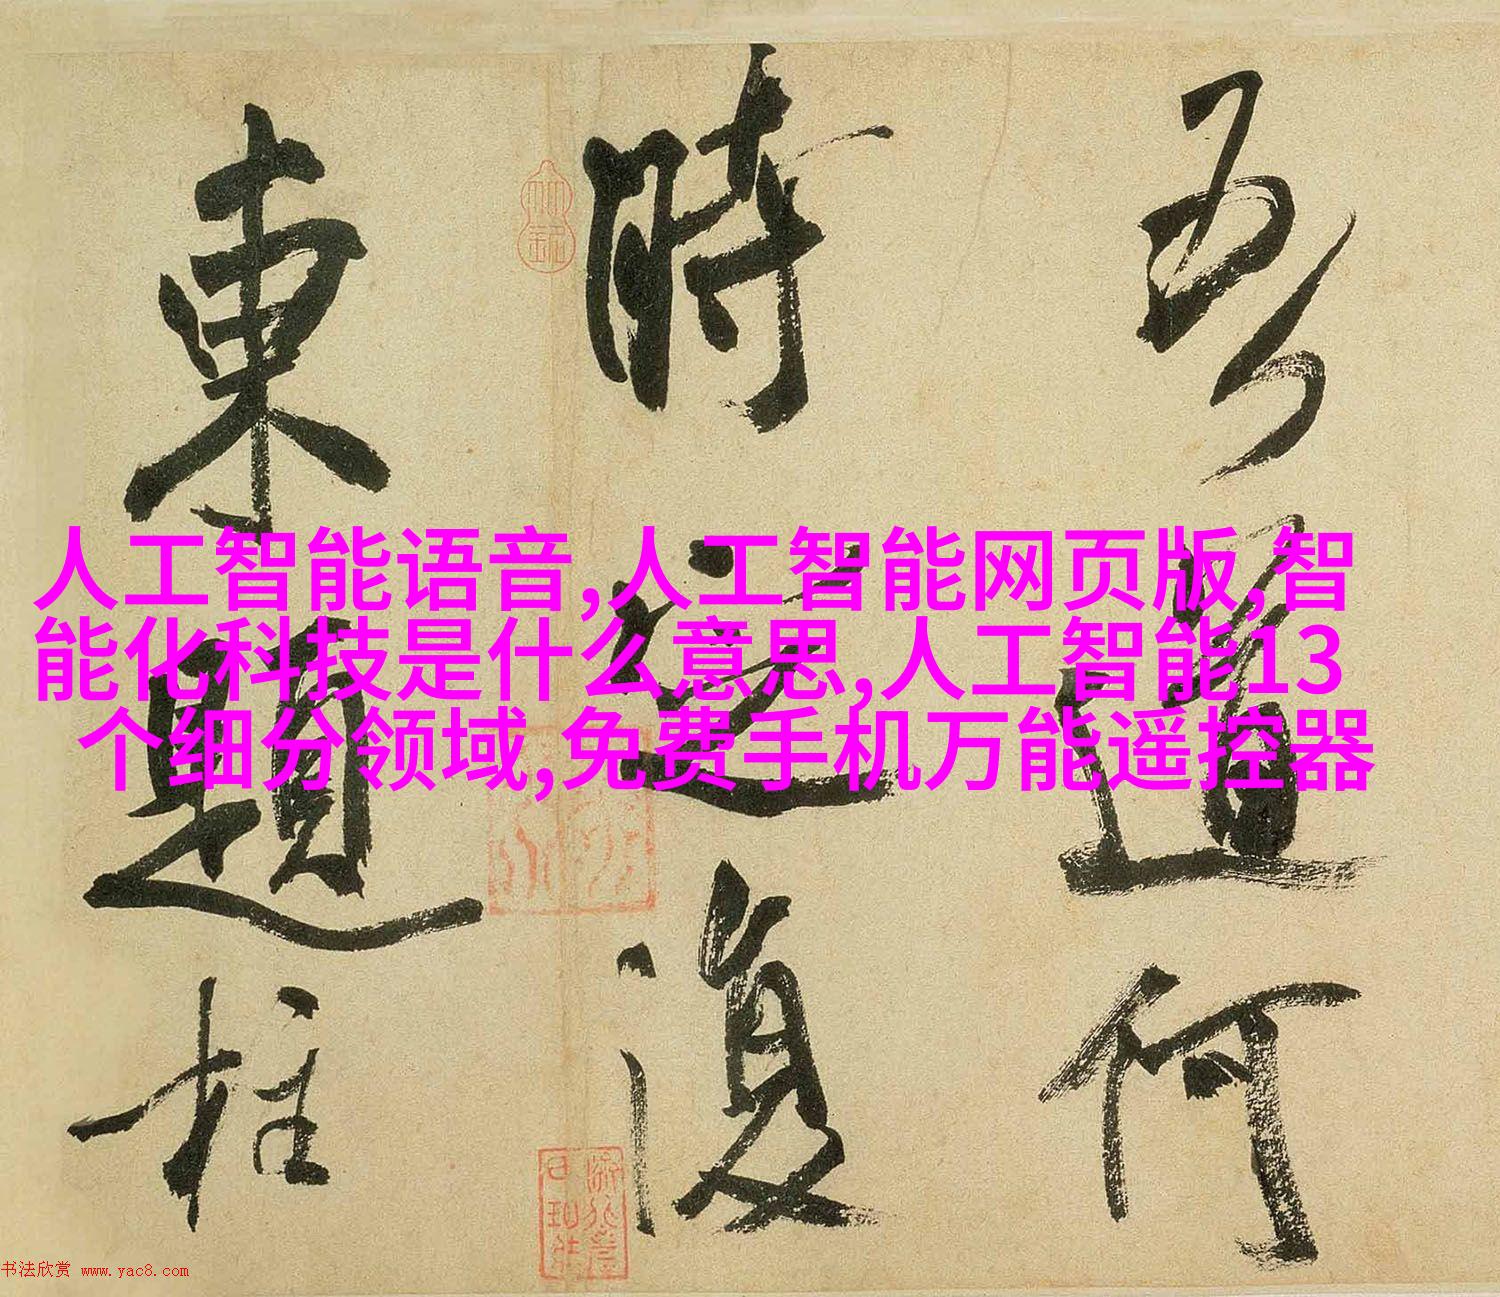 吾道何
時還復
東題柱
人工智能语音,人工智能网页版,智
能化科技是什么意思,人工智能13
个细分领域,免费手机万能遥控器
书法欣赏 www.yac8.com